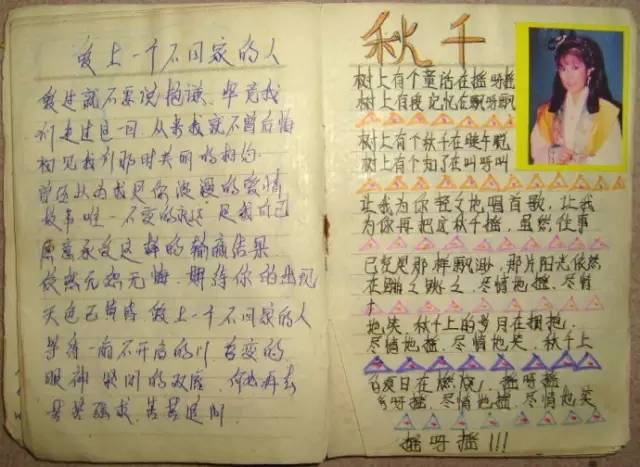 爱上一个不回家的人
爱过就不要说抱谦、毕竟我
们走过这一回、从来我就不曾后悔
初见我们那时美丽的相约
曾经以为我是你浪漫的爱情
故事唯一不变的 是我自己
愿意承受这样的输赢结果
依然无怨无悔 期待你的出现
天色已 爱上一个不回家的人
等待一扇不开启的门 善变的
眼神 紧闭的双唇 何必再去
苦苦强求、苦苦追问
秋千
树上有个童话在摇呀摇
树上有段记忆在飘呀飘
树上有个秋千在睡午觉
树上有个知了在叫呀叫
让我为你轻之地唱首歌、让我
为你再把这秋千摇、虽然往事
已经是那样飘渺、那片阳光依然
在跳之跳之、尽情地摇、尽情
地笑、秋千上的岁月在拥抱、
尽情地摇、尽情地笑、秋千上
夏日在燃烧、摇呀摇
呀摇、尽情地摇、尽情地笑
摇呀摇!!!